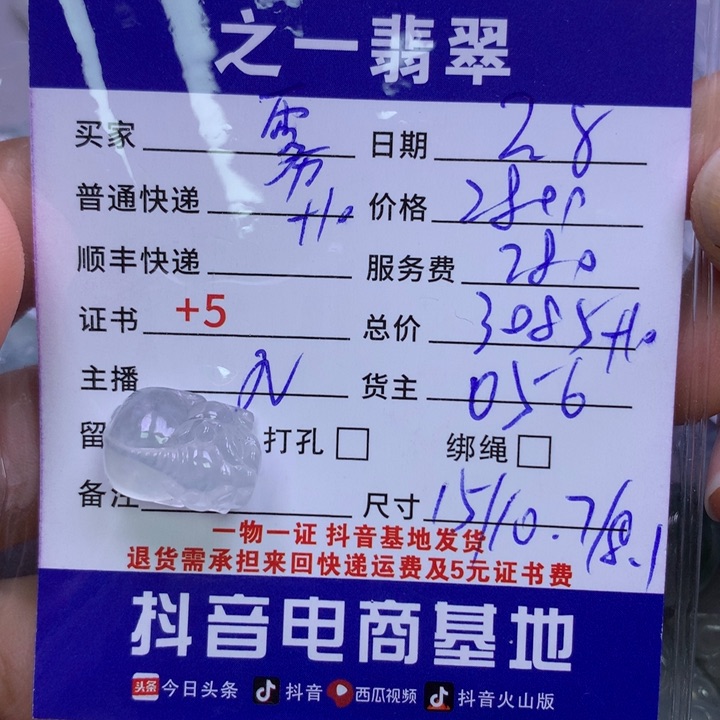 之一翡翠
买家 雾 日期 28
普通快递 价格 2800
顺丰快递 服务费 280
证书 +5 总价 3085
主播 N 货主 056
留 打孔 绑绳
备注 尺寸 15/10.7/8.1
一物一证 抖音基地发货
退货需承担来回快递运费及5元证书费
抖音电商基地
头条 今日头条 抖音 西瓜视频 抖音火山版